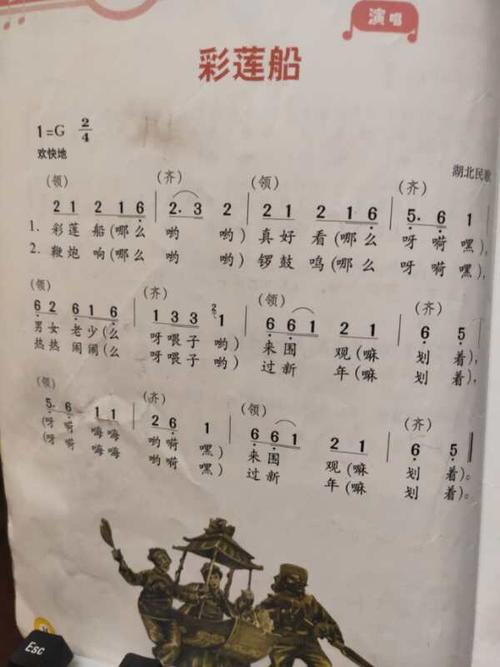 演唱
彩莲船
1=G 2/4
欢快地
湖北民歌
(领) (齐) (领) (齐)
2 1 2 1 6 | 2. 3 2 | 2 1 2 1 6 | 5. 6 1 |
1. 彩莲船(哪么哟哟)真好看(哪么呀嗬嘿),
2. 鞭炮响(哪么哟哟)锣鼓鸣(哪么呀嗬嘿),
(领) (齐) (领) (齐)
6 2 6 1 6 | 1 3 3 2 1 | 6 6 1 2 1 | 6 5 |
男女老少(么呀喂子哟)来围观(嘛划着),
热热闹闹(么呀喂子哟)过新年(嘛划着),
(领) (齐) (领) (齐)
5. 6 1 1 | 2 6 1 | 6 6 1 2 1 | 6 5
(呀嗬嗨嗨哟嗬嘿)来围观(嘛划着)。
(呀嗬嗨嗨哟嗬嘿)过新年(嘛划着)。
Esc